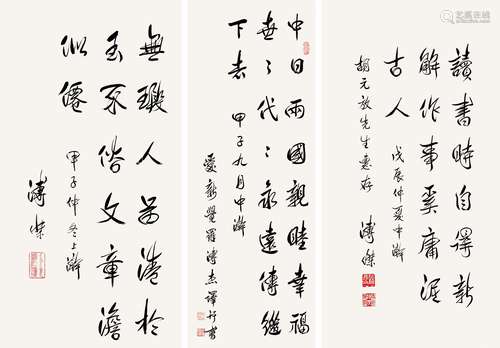 讀書時自繹新
解作事奚庸泥
古人
戊辰仲夏中澣
溥傑
胡元放先生惠存
中日兩國親睦幸福
世々代々永遠傳繼
下去
甲子九月中澣
愛新覺羅溥杰譯
無瑕人品清於
玉不俗文章澹
似僊
甲子仲冬上澣
溥傑